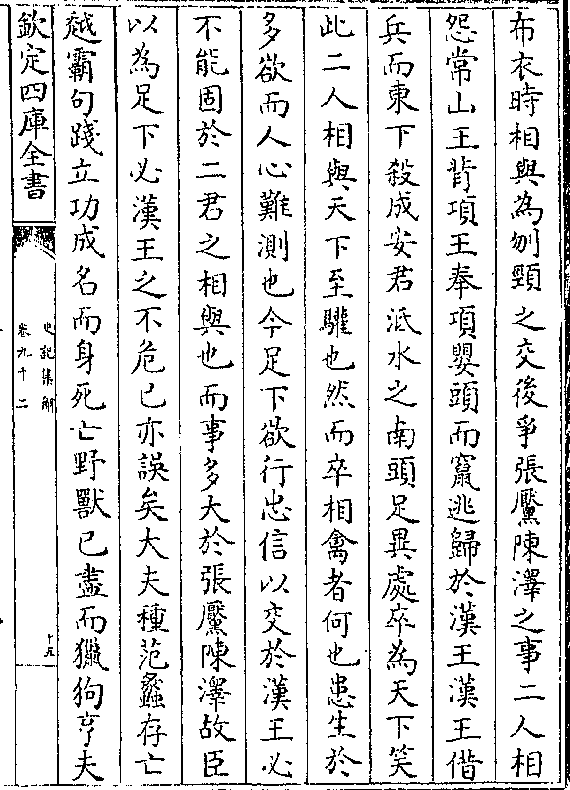 布衣時相與為刎頸之交後爭張黶陳澤之事二人相
怨常山王背項王奉項嬰頭而竄逃歸於漢王漢王借
兵而東下殺成安君泜水之南頭足異處卒為天下笑
此二人相與天下至驩也然而卒相禽者何也患生於
多欲而人心難測也今足下欲行忠信以交於漢王必
不能固於二君之相與也而事多大於張黶陳澤故臣
以為足下必漢王之不危已亦誤矣大夫種范蠡存亡
越霸句踐立功成名而身死亡野獸已盡而獵狗亨夫
欽定四庫全書
史記集解
卷九十二
十五